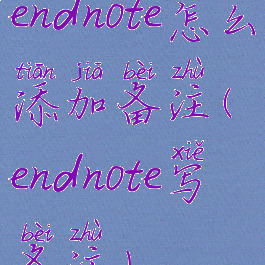 endnote怎么
tiān jiā bèi zhù
添加备注(
xiě
endnote写
bèi zhù
备注)